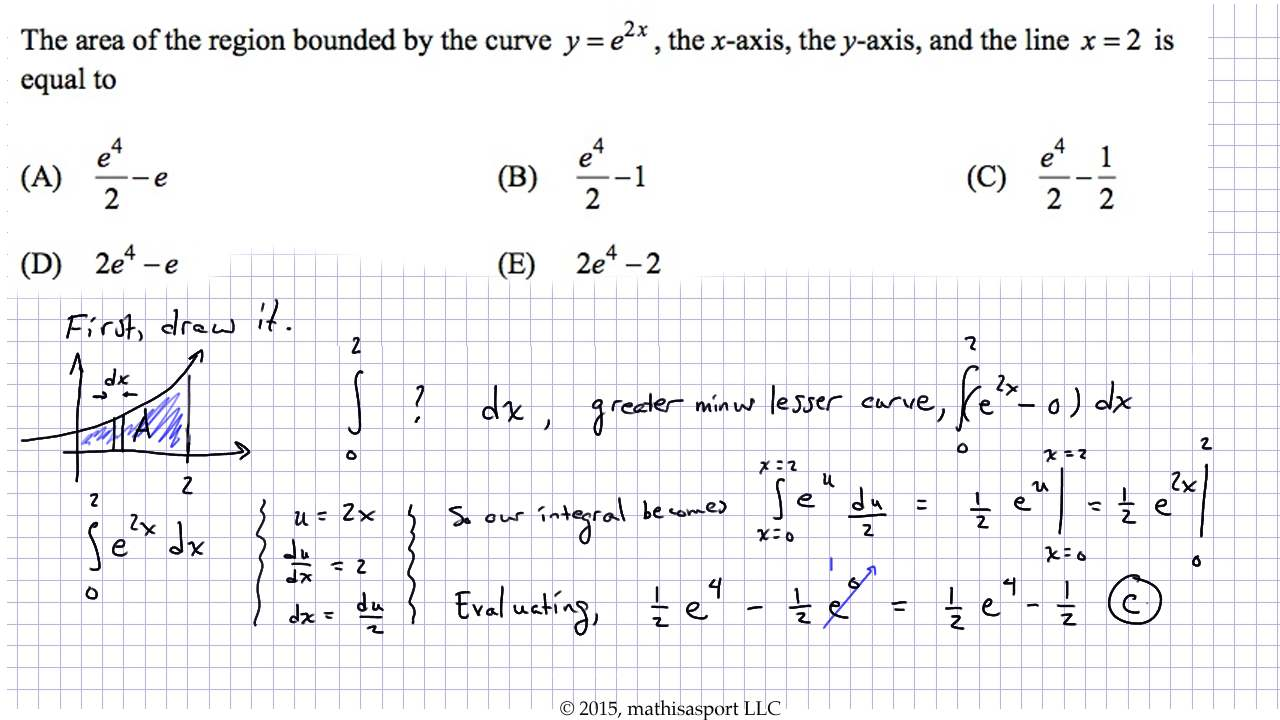 The area of the region bounded by the curve y = e^{2x}, the x-axis, the y-axis, and the line x = 2 is
equal to
(A) e^4/2 − e (B) e^4/2 − 1 (C) e^4/2 − 1/2
(D) 2e^4 − e (E) 2e^4 − 2
First, draw it.
dx
A
2
∫_0^2 ? dx, greater minus lesser curve, ∫_0^2 (e^{2x} − 0) dx
∫_0^2 e^{2x} dx
u = 2x
du/dx = 2
dx = du/2
So our integral becomes ∫_{x=0}^{x=2} e^u du/2 = 1/2 e^u |_{x=0}^{x=2} = 1/2 e^{2x} |_0^2
Evaluating, 1/2 e^4 − 1/2 e^0 1 = 1/2 e^4 − 1/2 C
© 2015, mathisasport LLC